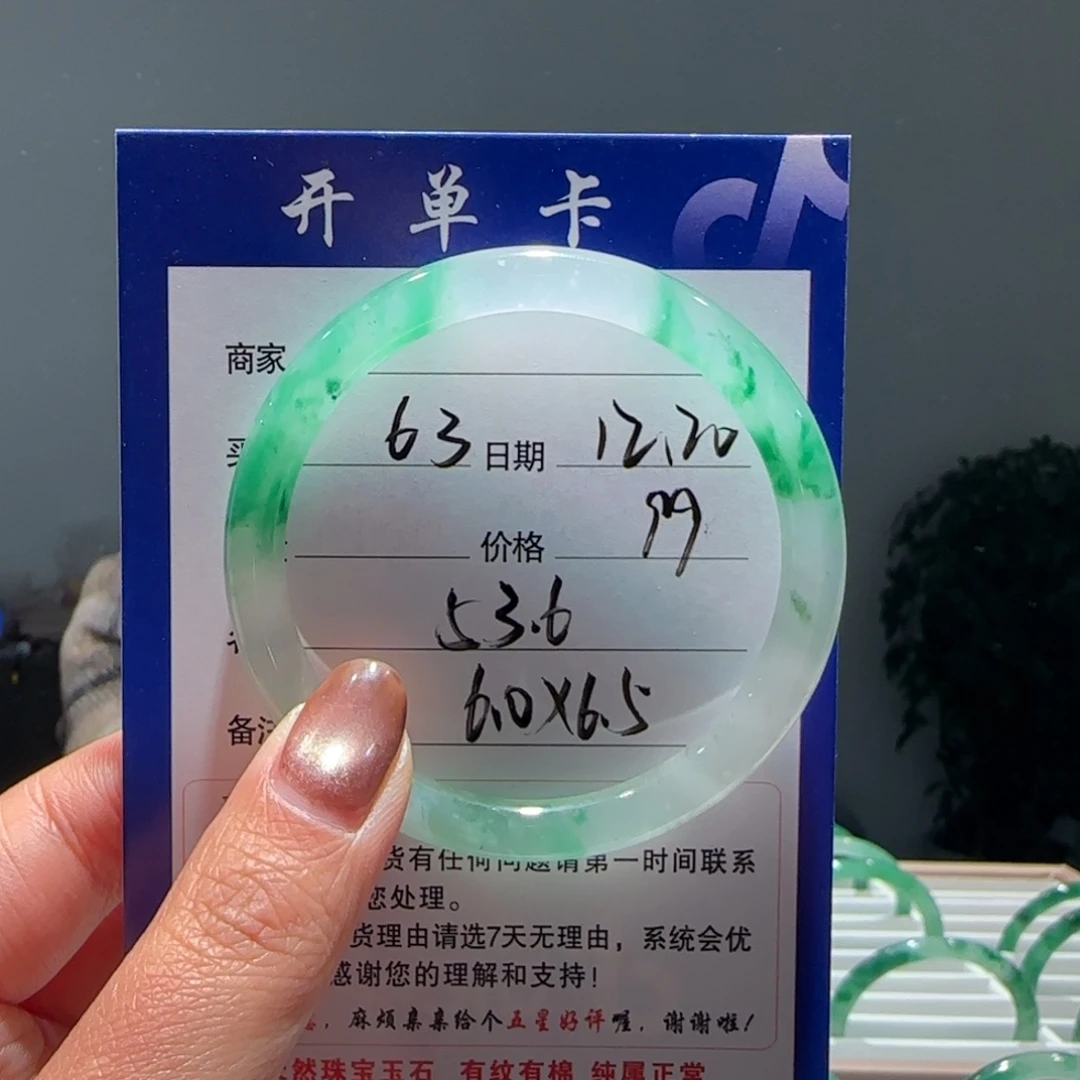 开单卡
商家
63 日期 12.20
价格
53.6
6.0X6.5
备注
货有任何问题请第一时间联系
您处理。
货理由请选7天无理由，系统会优
感谢您的理解和支持！
，麻烦亲亲给个五星好评喔，谢谢啦！
然珠宝玉石 有纹有棉 纯属正常